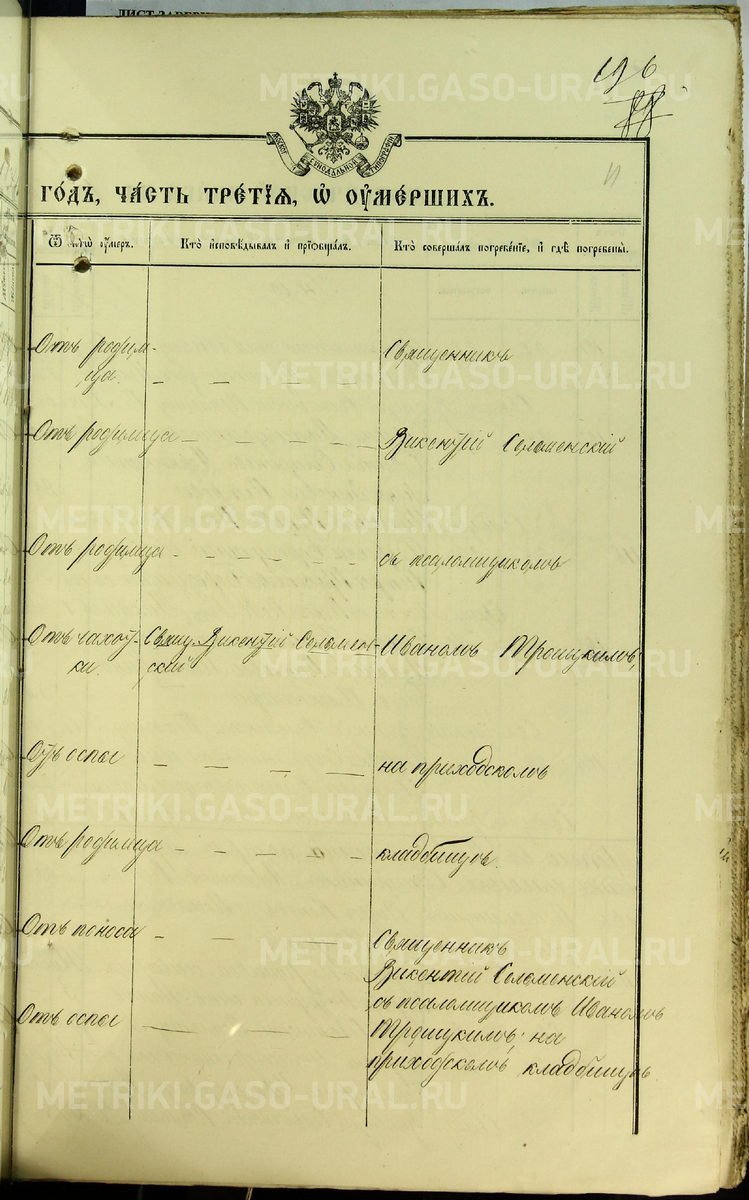 196
СѴНОДАЛЬНОЙ
ГО́ДЪ, ЧА́СТЬ ТРЕ́ТІѦ, Ѡ҆ ОУ҆МЕ́РШИХЪ.
Кто̀ и҆сповѣ́дывалъ и҆ прїѡбща́лъ.
Кто̀ соверша́лъ погребе́нїе, и҆ гдѣ̀ погребены̀.
Отъ родим-
ца. — — — — —
Священникъ
Отъ родимца — — — — —
Викентій Соломенскій
Отъ родимца — — — — —
съ псаломщикомъ
Отъ чахот-
ки.
Свящ. Викентій Соломен-
скій
Иваномъ Троицкимъ,
Отъ оспы — — — —
на приходскомъ
Отъ родимца — — — — —
кладбищѣ.
Отъ поноса — — —
Священникъ
Викентій Соломенскій
съ псаломщикомъ Иваномъ
Отъ оспы — — —
Троицкимъ, на
приходскомъ кладбищѣ
METRIKI.GASO-URAL.RU